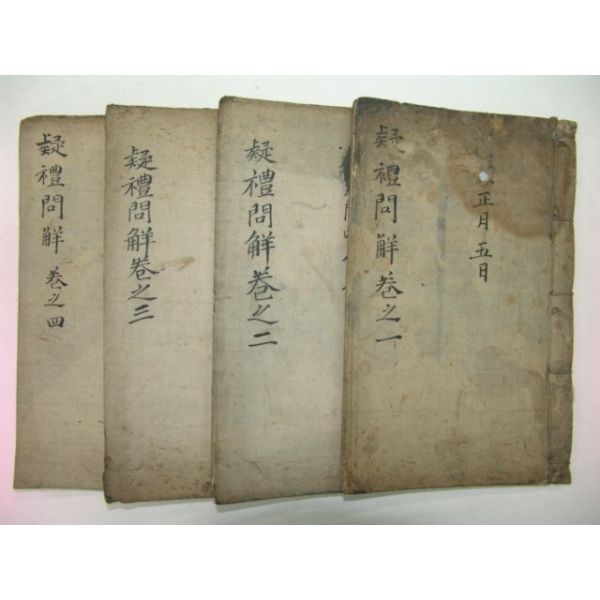 正月五日
疑禮問觧卷之一
疑禮問觧卷之二
疑禮問觧卷之三
疑禮問觧卷之四